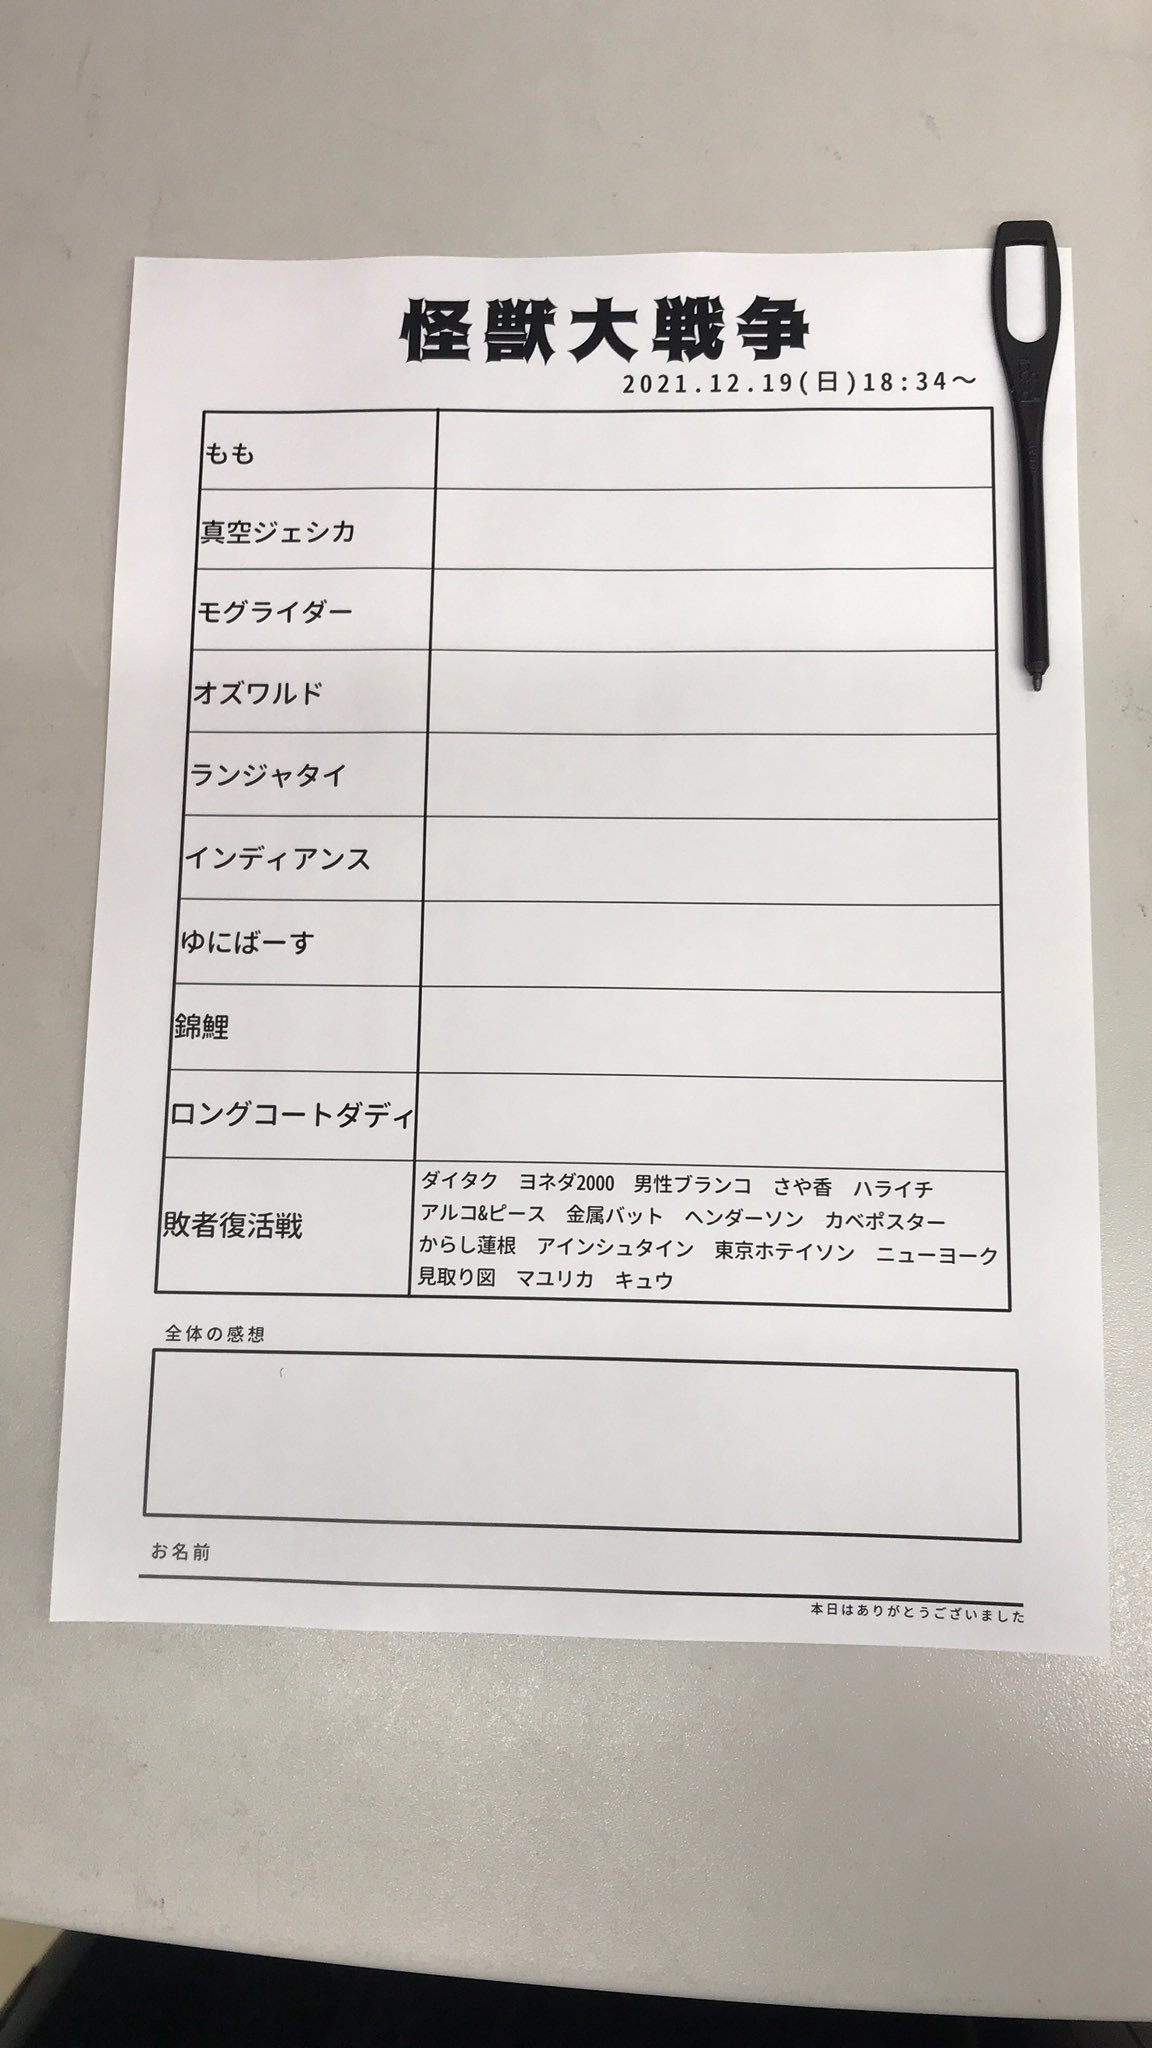 怪獣大戦争
2021.12.19(日)18:34〜
もも
真空ジェシカ
モグライダー
オズワルド
ランジャタイ
インディアンス
ゆにばーす
錦鯉
ロングコートダディ
敗者復活戦
ダイタク ヨネダ2000 男性ブランコ さや香 ハライチ
アルコ&ピース 金属バット ヘンダーソン カベポスター
からし蓮根 アインシュタイン 東京ホテイソン ニューヨーク
見取り図 マユリカ キュウ
全体の感想
お名前
本日はありがとうございました